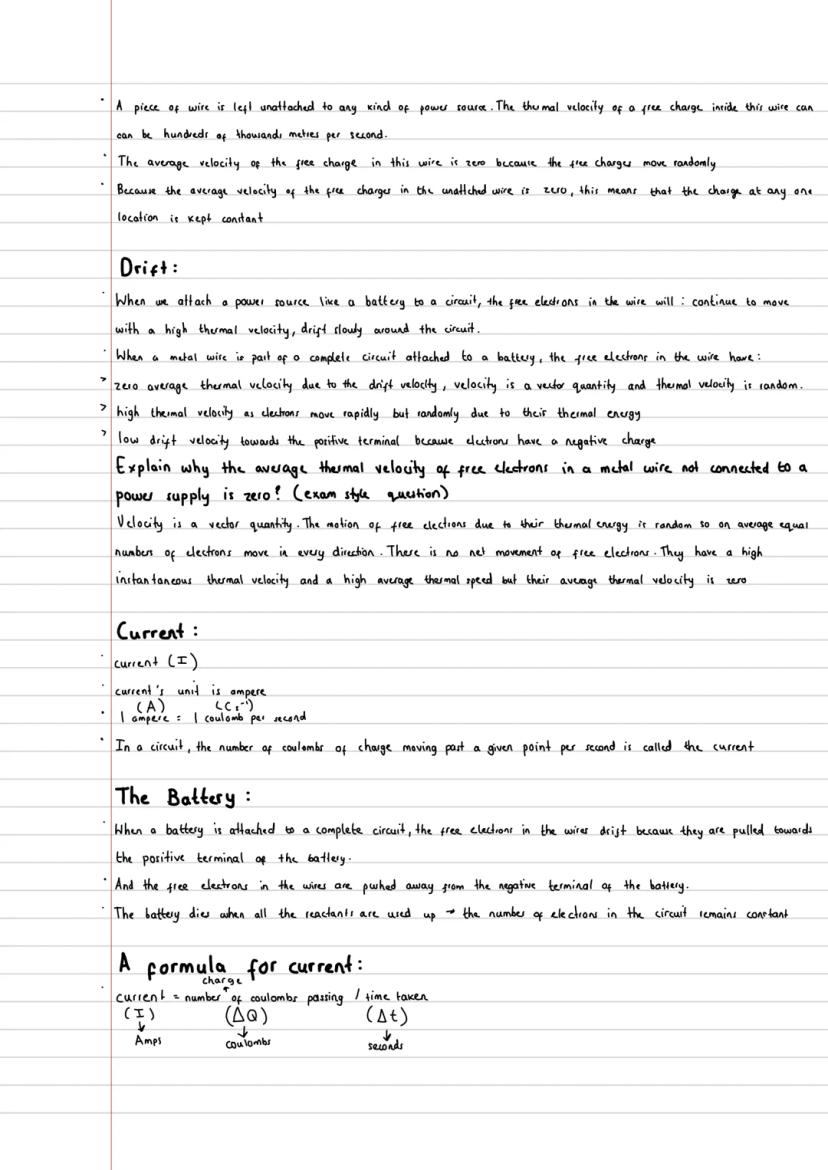 · A piece of wire is left unattached to any kind of power source. The thermal velocity of a free charge inside this wire can
can be hundreds of thousands metres per second.
· The average velocity of the free charge in this wire is zero because the free charges move randomly
· Because the average velocity of the free charges in the unattched wire is zero, this means that the charge at any one
location is kept constant
Drift:
· When we attach a power source like a battery to a circuit, the free electrons in the wire will : continue to move
with a high thermal velocity, drift slowly around the circuit.
· When a metal wire is part of a complete circuit attached to a battery, the free electrons in the wire have:
> zero average thermal velocity due to the drift velocity, velocity is a vector quantity and thermal velocity is random.
> high thermal velocity as electrons move rapidly but randomly due to their thermal energy
> low drift velocity towards the positive terminal because electrons have a negative charge
Explain why the average thermal velocity of free electrons in a metal wire not connected to a
power supply is zero? (exam style question)
Velocity is a vector quantity. The motion of free elections due to their thermal energy is random so on average equal
numbers of electrons move in every direction. There is no net movement of free electrons. They have a high
instantaneous thermal velocity and a high average thermal speed but their average thermal velocity is zero
Current:
· current (I)
· current's unit is ampere
(A) (Cs⁻¹)
· 1 ampere = 1 coulomb per second
· In a circuit, the number of coulombs of charge moving past a given point per second is called the current
The Battery:
· When a battery is attached to a complete circuit, the free electrons in the wires drift because they are pulled towards
the positive terminal of the battery.
· And the free electrons in the wires are pushed away from the negative terminal of the battery.
· The battery dies when all the reactants are used up → the number of electrons in the circuit remains constant
A formula for current:
charge
· current = number of coulombs passing / time taken
(I) (ΔQ) (Δt)
↓ ↓ ↓
Amps coulombs seconds